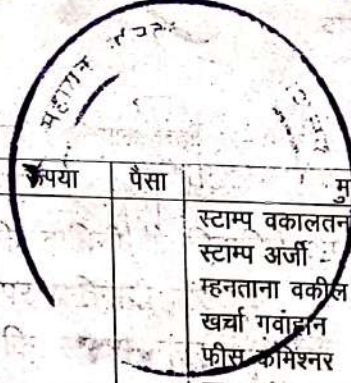 रूपया पैसा मु
स्टाम्प वकालतन
स्टाम्प अर्जी
म्हनताना वकील
खर्चा गवाहान
फीस कमिश्नर